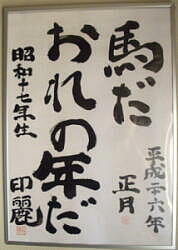 馬だ
おれの年だ
平成二十六年
正月
昭和十七年生
印麗